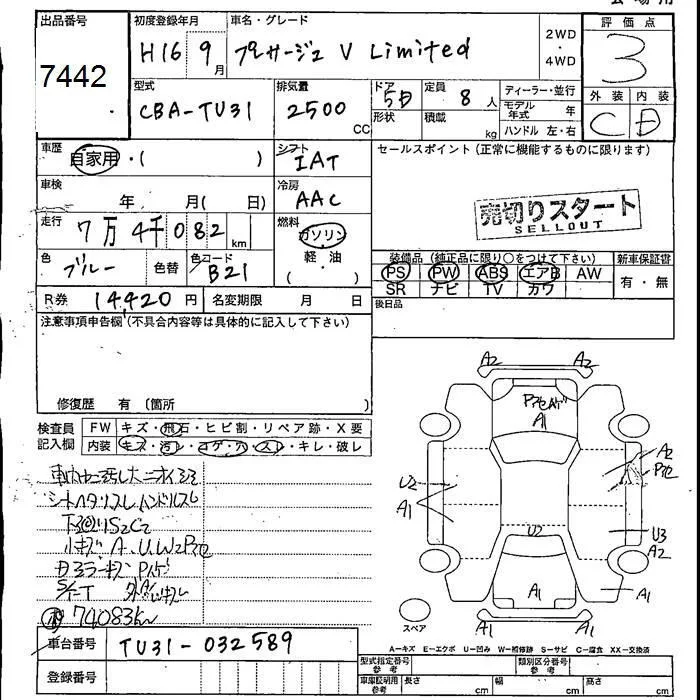 出品番号
7442
初度登録年月
H16 9月
車名・グレード
プレサージュ V Limited
2WD・4WD
評価点
3
型式
CBA-TU31
排気量
2500 CC
ドア
5D
形状
定員
8人
積載
kg
ディーラー・並行
モデル年式 年
ハンドル 左・右
外装 内装
C D
車歴
自家用・( )
シフト
IAT
セールスポイント(正常に機能するものに限ります)
車検
年 月( 日)
冷房
AAC
売切りスタート
SELLOUT
走行
7万4千082km
燃料
ガソリン
軽・油
( )
色
ブルー
色替
色コード
B21
装備品(純正品に限り○をつけて下さい)
PS PW ABS エアB AW
SR ナビ TV カワ
新車保証書
有・無
R券 14,420円
名変期限 月 日
後日品
注意事項申告欄(不具合内容等は具体的に記入して下さい)
修復歴 有(箇所 )
検査員記入欄
FW キズ・飛石・ヒビ割・リペア跡・X要
内装 キズ・汚レ・コゲ・穴・スレ・キレ・破レ
シートヘタリスレ ハンドルスレ
小キズ A.U.W2
74083km
A2 A2
A1
A2
U2
A1
U2
U3
A2
A1
A1
A1 A1
スペア
A-キズ E-エクボ U-凹み W-補修跡 S-サビ C-腐食 XX-交換済
車台番号 TU31-032589
登録番号
型式指定番号 参考
類別区分番号 参考
車庫証明用 参考
長さ cm 幅 cm 高さ cm